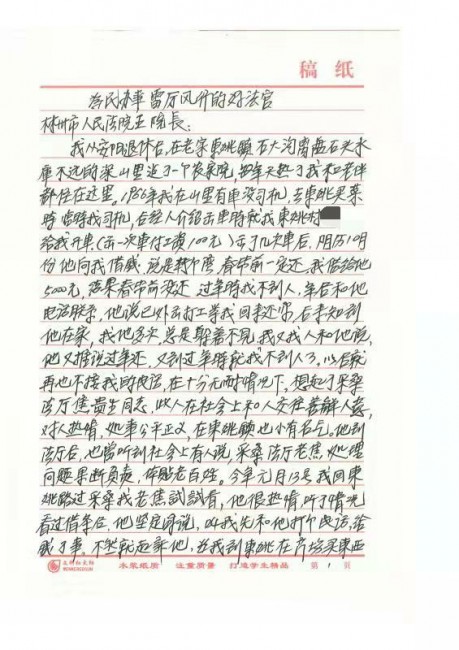 稿 纸
为民办事 雷厉风行的好法官
林州市人民法院王院長:
我从安阳退休后,在老家東姚鎮石大沟
庫不远的深山里 了一个农家院,每年天热了我和老伴
都住在这里。 年我在山里有車没司机,去東姚买菜
時 找司机,后经人介绍 車時就找東姚村
给我开車(去一次車付工资100元)去了几次車后,阴历10月
份他向我借咸 说是转个湾 春节前一定还,我借给他
5000元,结果春节前没还 过年時找不到人,年后和他
电话联系,他说已外出打工等我回来还你,后来知到
他在家,我他多次总是躲着不見,我又找人和他说,
他又推说过年还,又到过年時就找不到人了,以后就
再也不接我的电话,在十分无耐情况下,想起了采桑
法庁焦贵生同志,此人在社会上和人交往善解人意,
对人热情,处事公平正义,在東姚鎮也小有名气。他到
法庁后,也曾听到社会上有人说,采桑法庁老焦,处理
问题果断负责,体贴老百姓。今年元月13号我回東
姚路过采桑找老焦試試看,他很热情,听了情况
看过借条后,他坚定的说,叫我先和他打个电话,给
戚了事,不然就起訴他,並我到東姚在 买東西
五彩红东阳
HONGCHUAN
水浆纸质 注重质量 打造学生精品 第 1 页